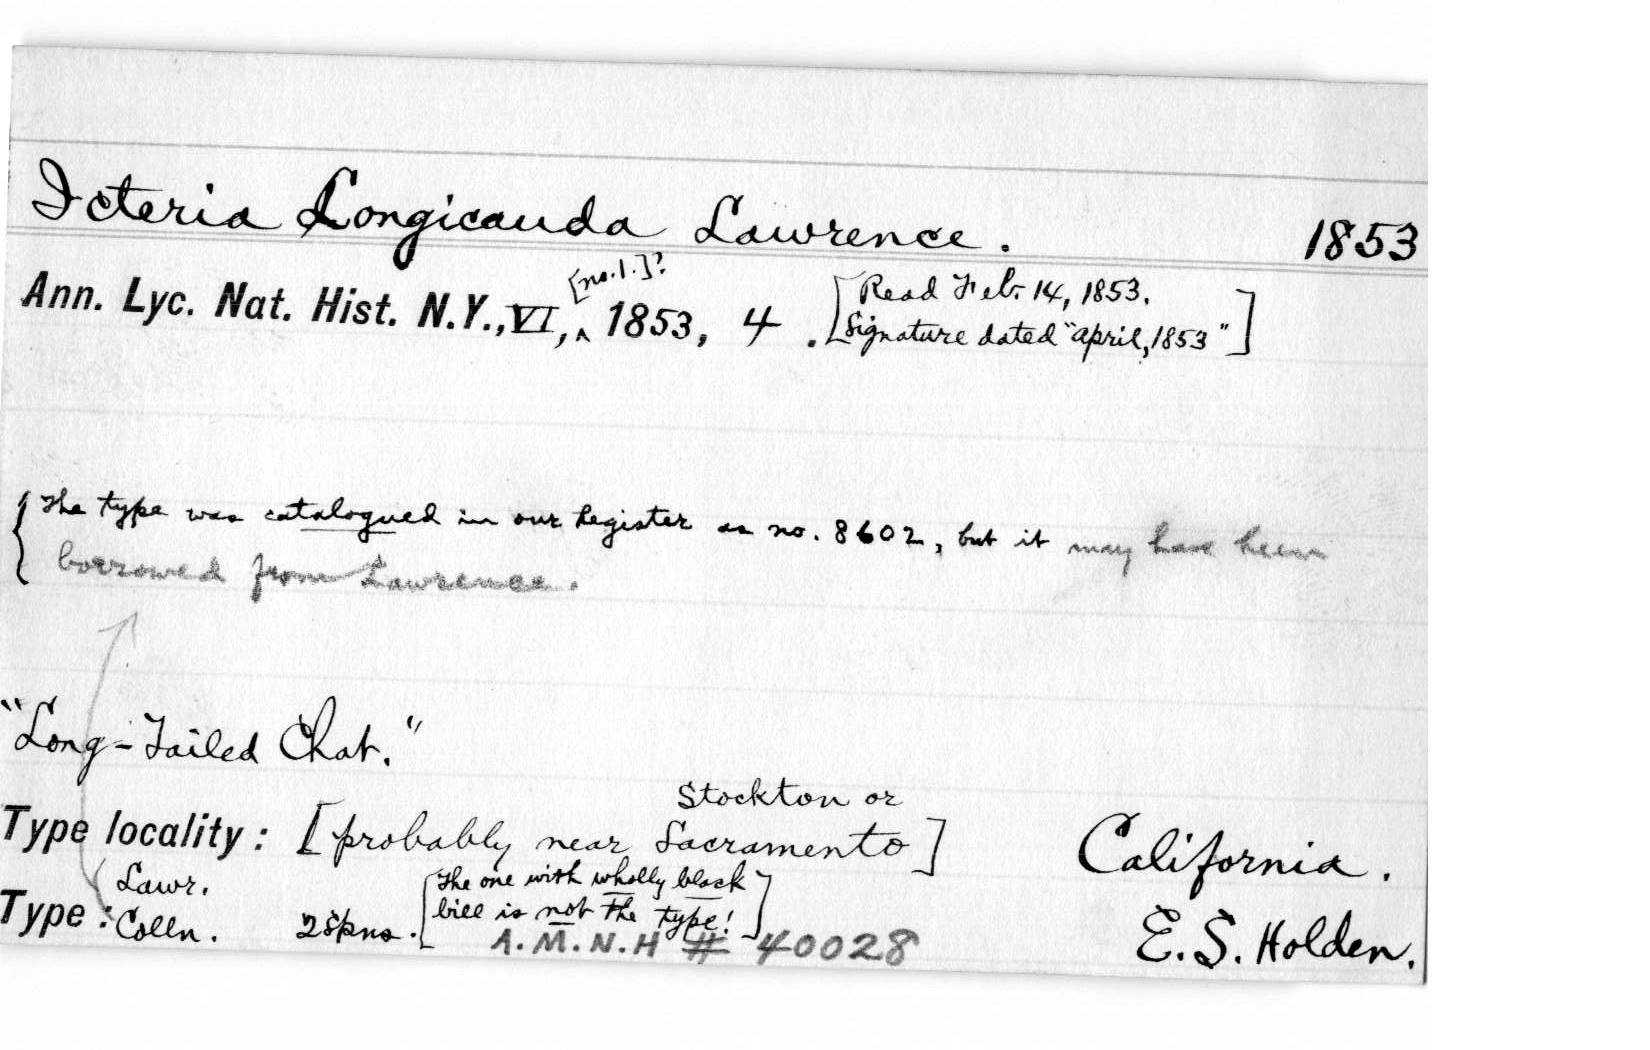 Icteria Longicauda Lawrence. 1853
[no.1.]?
Ann. Lyc. Nat. Hist. N.Y., VI, ^ 1853, 4 . [Read Feb. 14, 1853.
Signature dated "April, 1853"]
{The type was catalogued in our Register as no. 8602, but it may have been
borrowed from Lawrence.
"Long-Tailed Chat."
Stockton or
Type locality: [probably near Sacramento] California.
Lawr. [The one with wholly black
Type: Colln. 2 spns. bill is not the type!] E. S. Holden.
A.M.N.H # 40028